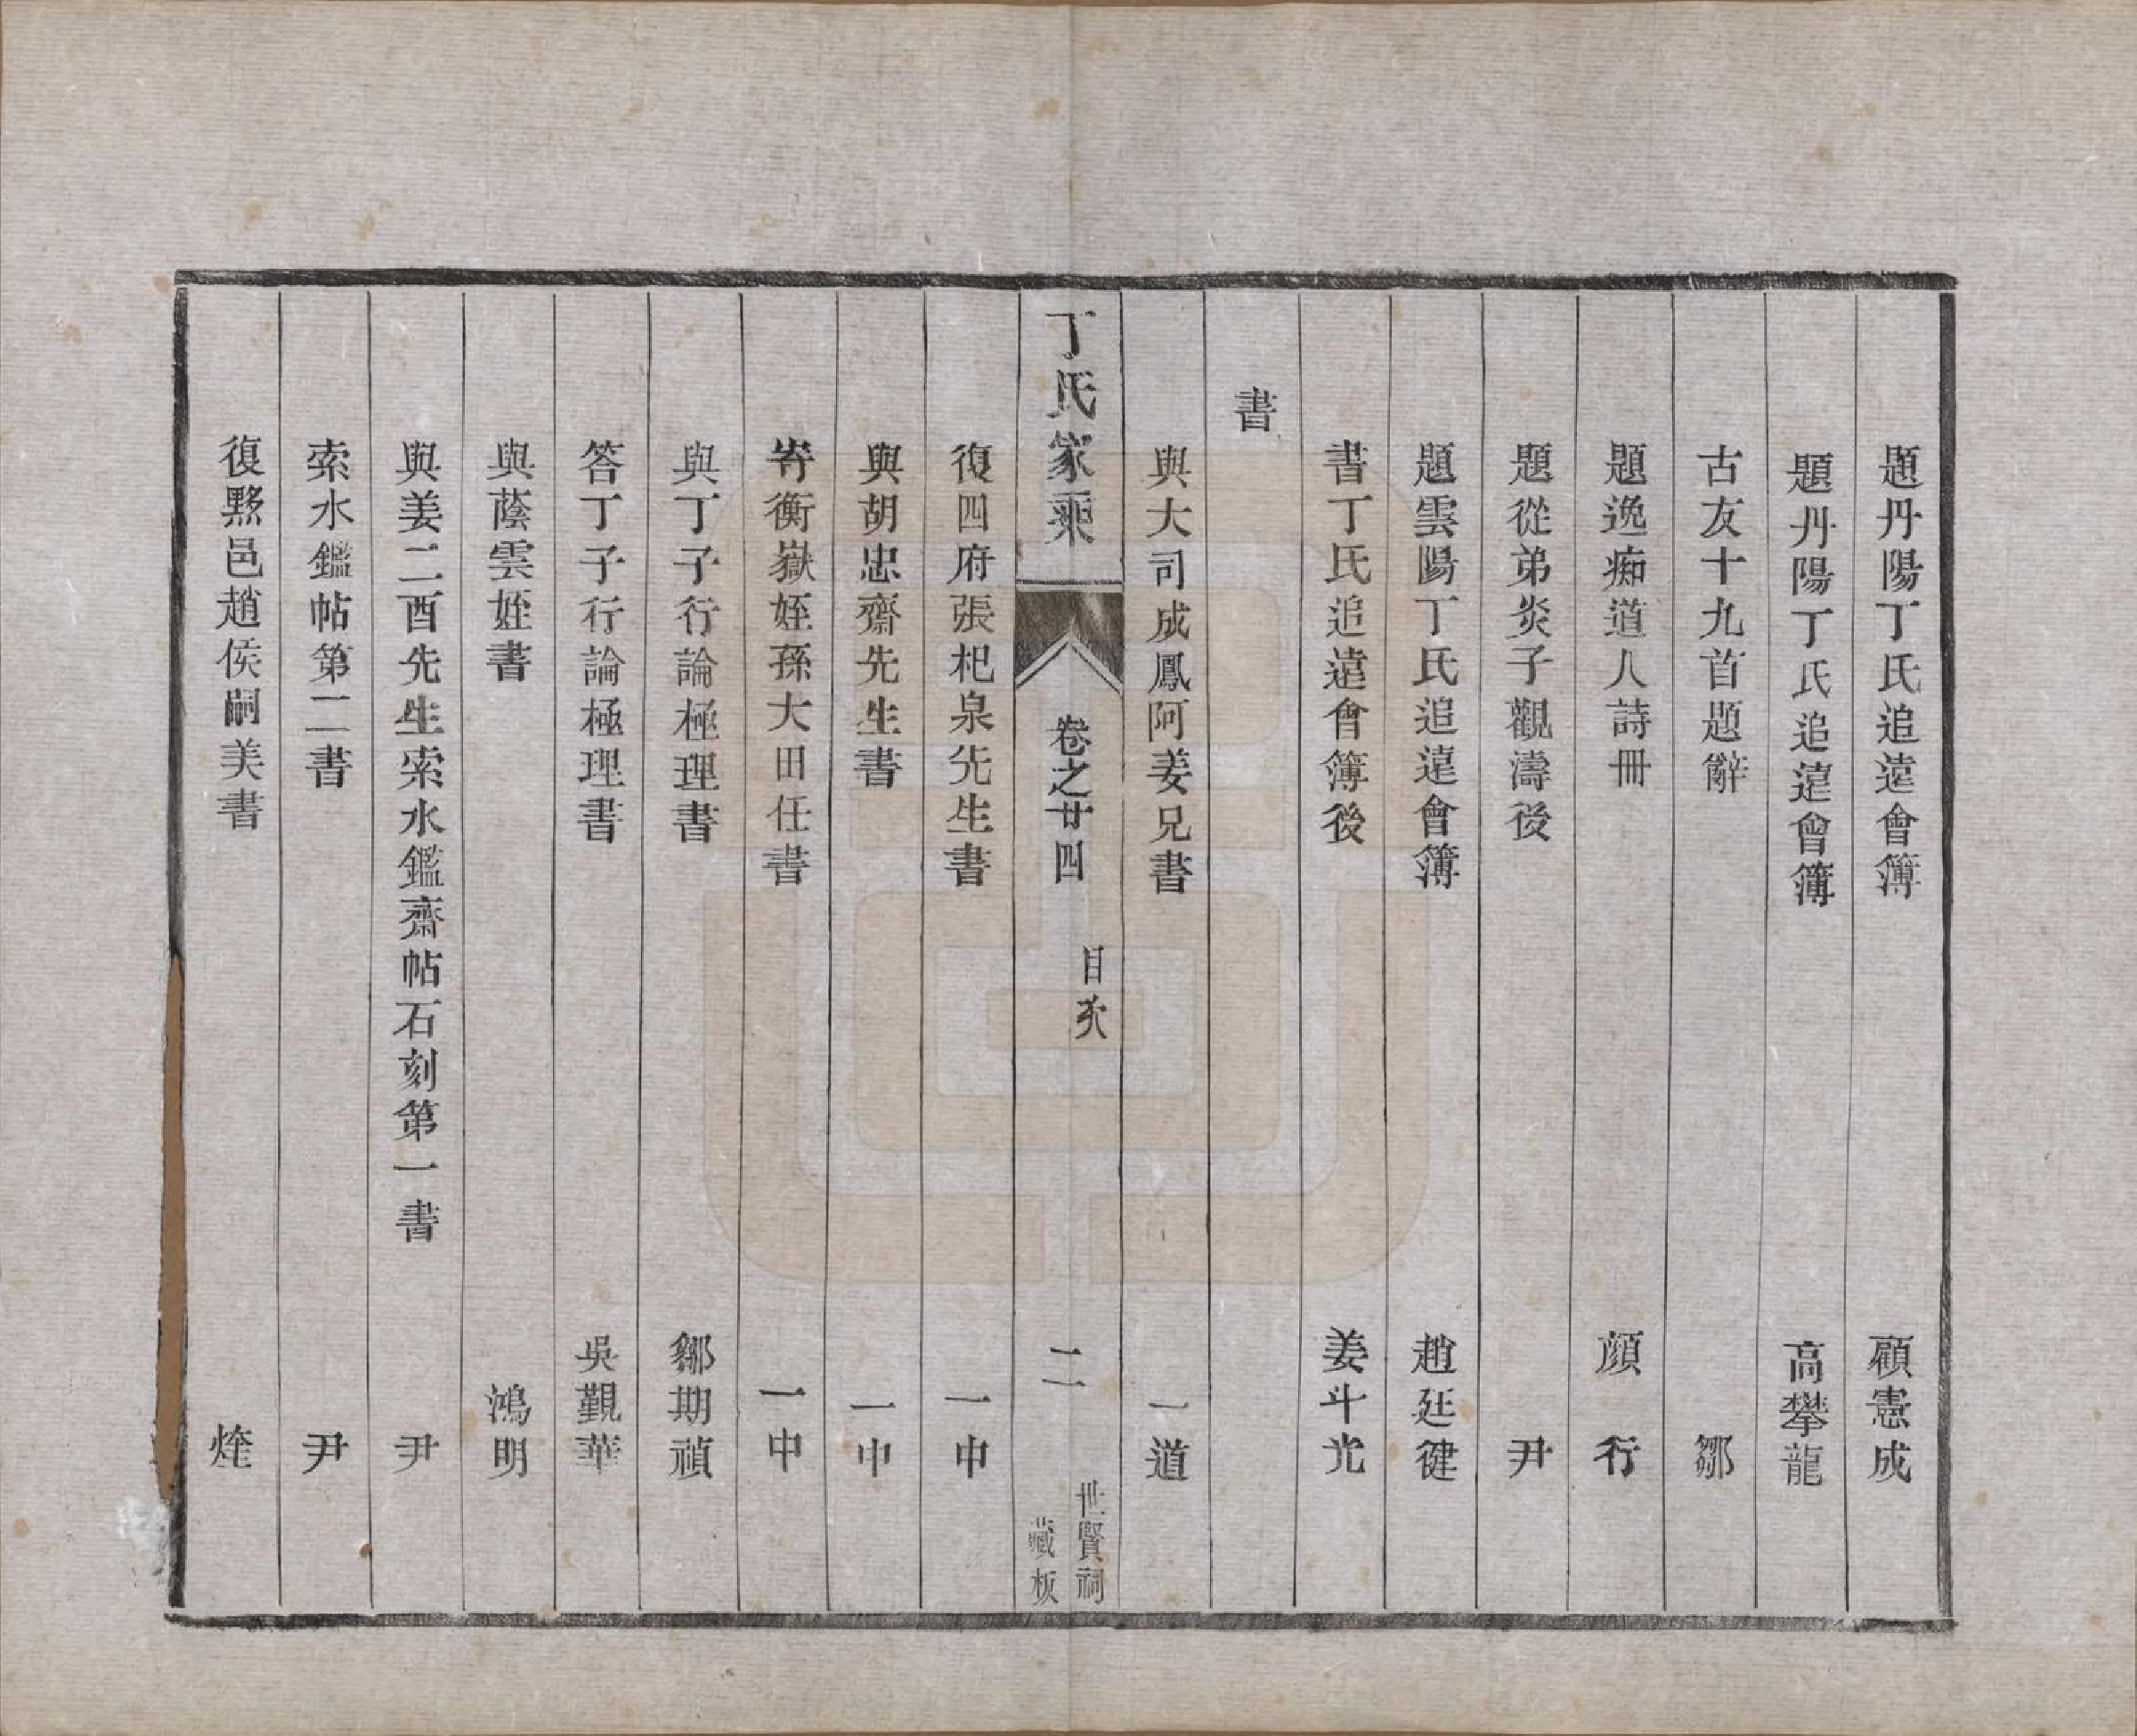 題丹陽丁氏追遠會簿 顧憲成
題丹陽丁氏追遠會簿 高攀龍
古友十九首題辭 鄒
題逸痴道人詩冊 顔行
題從弟炎子觀濤後 尹
題雲陽丁氏追遠會簿 趙廷健
書丁氏追遠會簿後 姜斗光
書
與大司成鳳阿姜兄書 一道
丁氏家乘 卷之廿四 目次 二 世賢祠藏板
復四府張杞泉先生書 一中
與胡忠齋先生書 一中
寄衡嶽姪孫大田任書 一中
與丁子行論極理書 鄒期禎
答丁子行論極理書 吳覲華
與蔭雲姪書 鴻明
與姜二酉先生索水鑑齋帖石刻第一書 尹
索水鑑帖第二書 尹
復黟邑趙侯嗣美書 煃